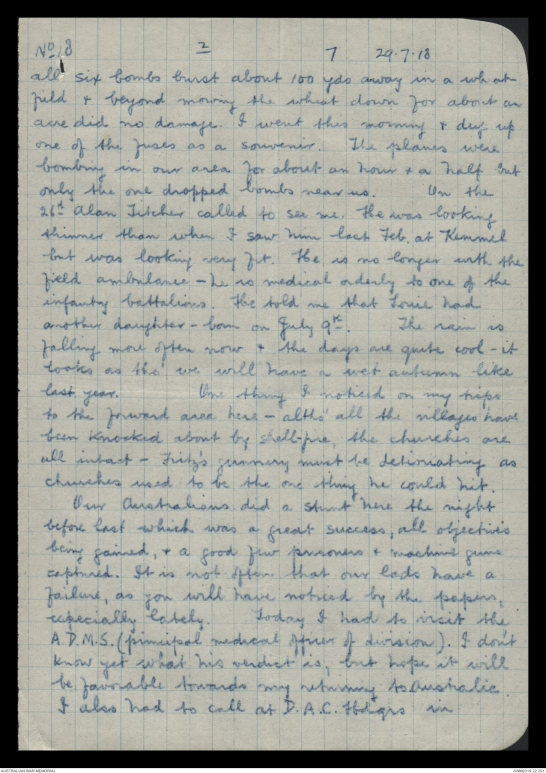 No 8 2 7 29.7.18
all six bombs burst about 100 yds away in a wheat
field & beyond mowing the wheat down for about an
acre did no damage. I went this morning & dug up
one of the fuses as a souvenir. The planes were
bombing in our area for about an hour & a half but
only the one dropped bombs near us. On the
26th Alan Titcher called to see me. He was looking
thinner than when I saw him last Feb. at Kemmel
but was looking very fit. He is no longer with the
field ambulance - he is medical orderly to one of the
infantry battalions. He told me that Louie had
another daughter - born on July 9th. The rain is
falling more often now & the days are quite cool - it
looks as tho' we will have a wet autumn like
last year. One thing I noticed on my trips
to the forward area here - altho' all the villages have
been knocked about by shell-fire, the churches are
all intact - Fritz's gunnery must be deteriorating as
churches used to be the one thing he could hit.
Our Australians did a stunt here the night
before last which was a great success, all objectives
being gained, & a good few prisoners & machine guns
captured. It is not often that our lads have a
failure, as you will have noticed by the papers,
especially lately. Today I had to visit the
A.D.M.S. (principal medical officer of division). I don't
know yet what his verdict is, but hope it will
be favorable towards my returning to Australia.
I also had to call at D.A.C. Hdqrs in
AUSTRALIAN WAR MEMORIAL